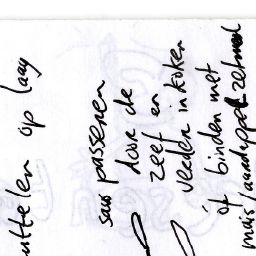 uttelen op laag
saus passeren
door de
zeef en
verder inkoken
óf binden met
mais/aardappelzetmeel